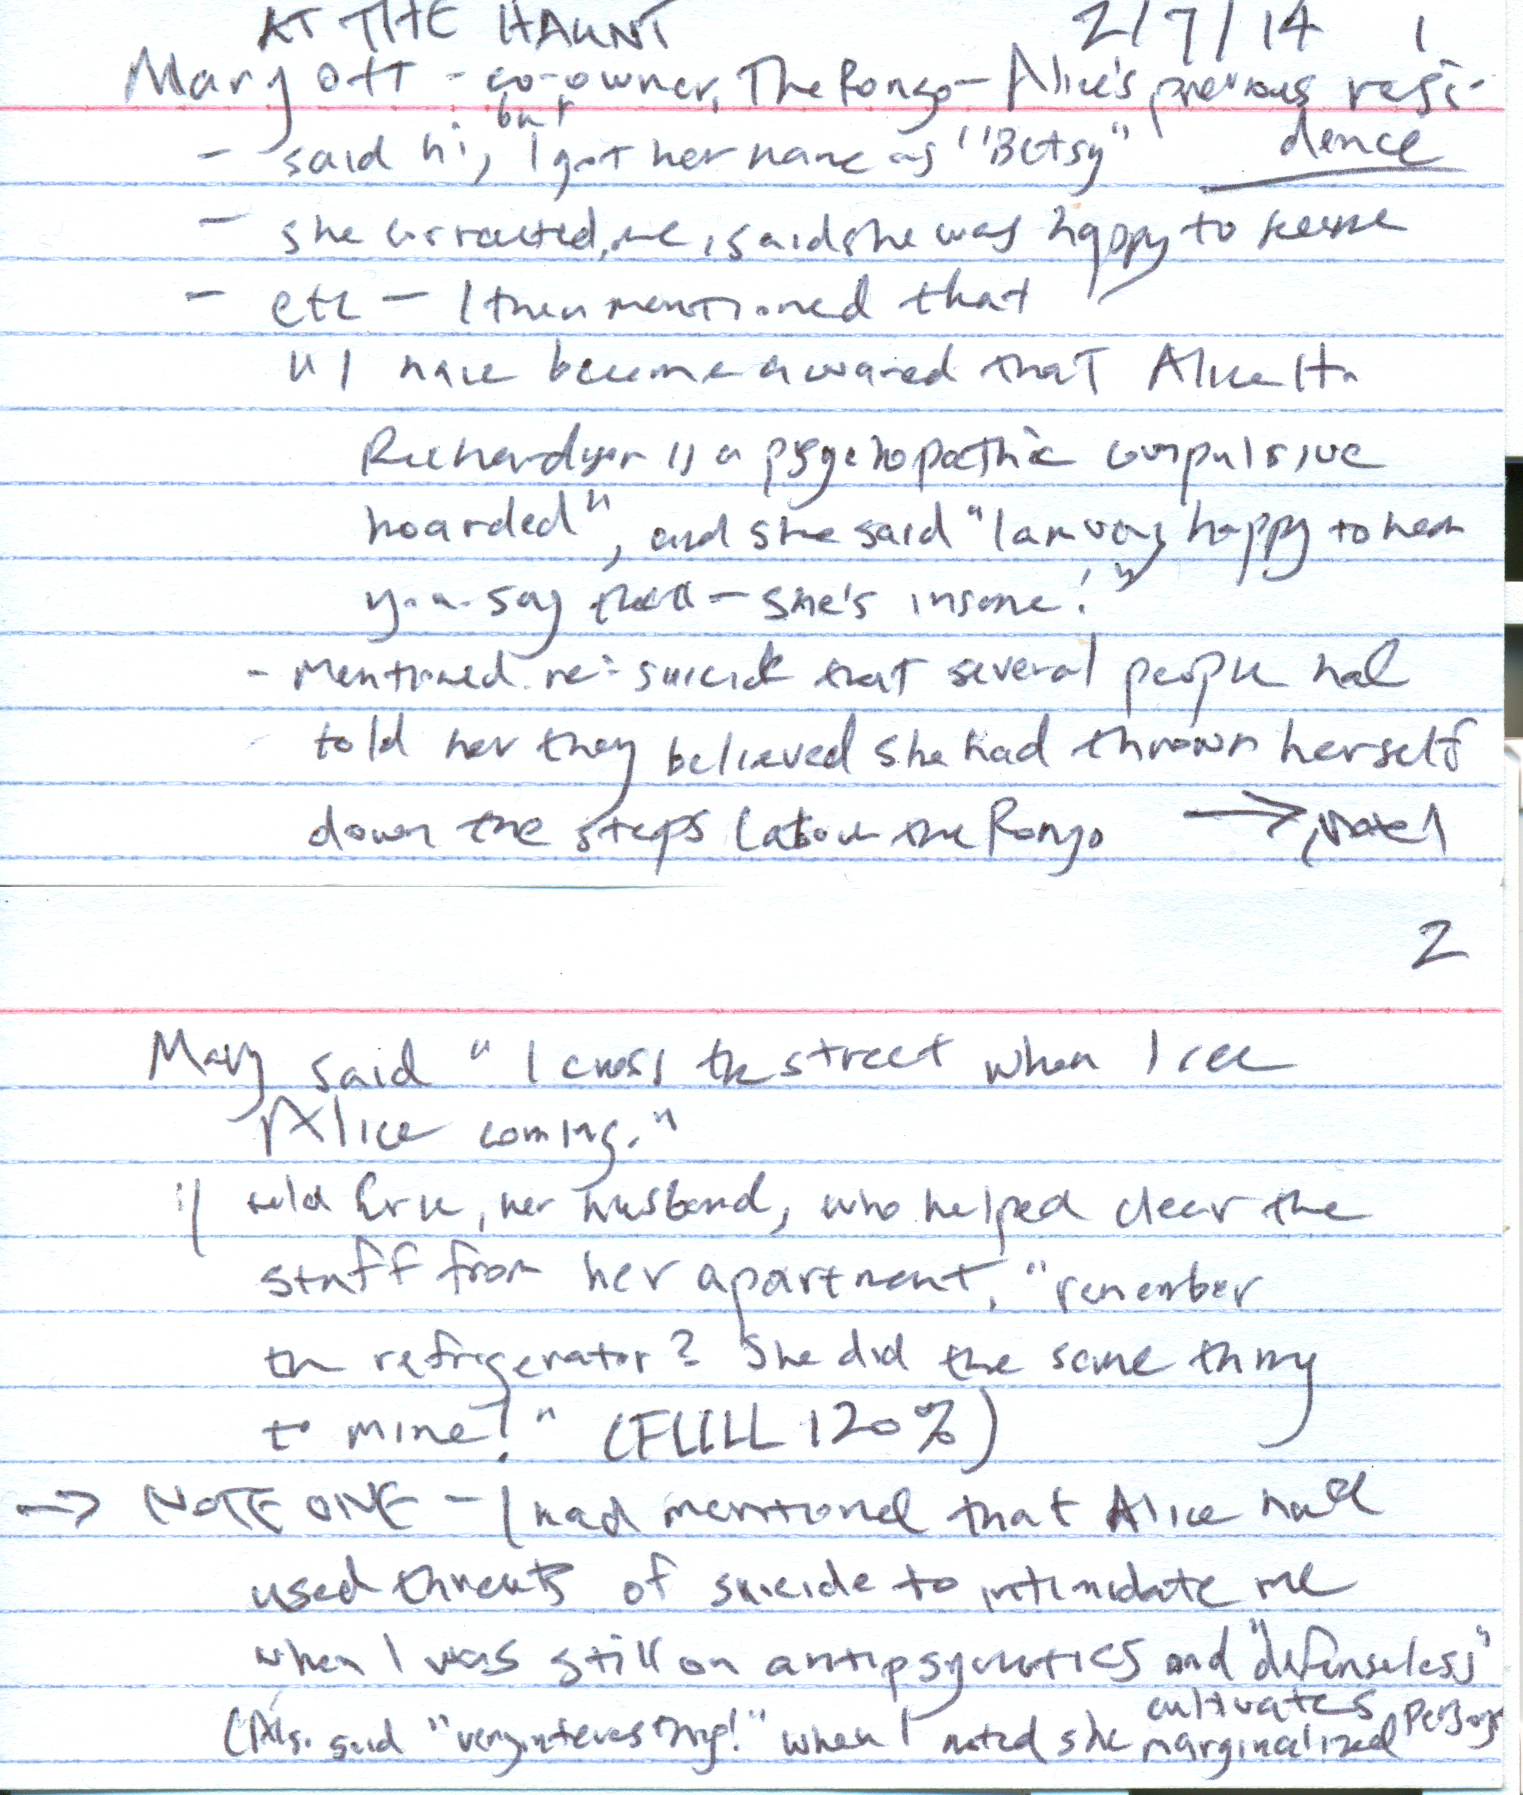 AT THE HAUNT 2/7/14 1
Mary Ott - co-owner, The Rongo - Alice's previous resi-
dence
- said hi, but I got her name as "Betsy"
- she corrected me, said she was happy to see me
- etc - I then mentioned that
"I have become awared that Alice H.
Richardson is a psychopathic compulsive
hoarded", and she said "I am very happy to hear
you say that - she's insane!"
- Mentioned re: suicide that several people had
told her they believed she had thrown herself
down the steps (above the Rongo → note 1
2
Mary said "I cross the street when I see
Alice coming."
I told Eric, her husband, who helped clear the
stuff from her apartment, "remember
the refrigerator? She did the same thing
to mine!" (FULL 120%)
→ NOTE ONE - I had mentioned that Alice had
used threats of suicide to intimidate me
when I was still on antipsychotics and "defenseless"
(Also said "very interesting!" when I noted she cultivates marginalized persons